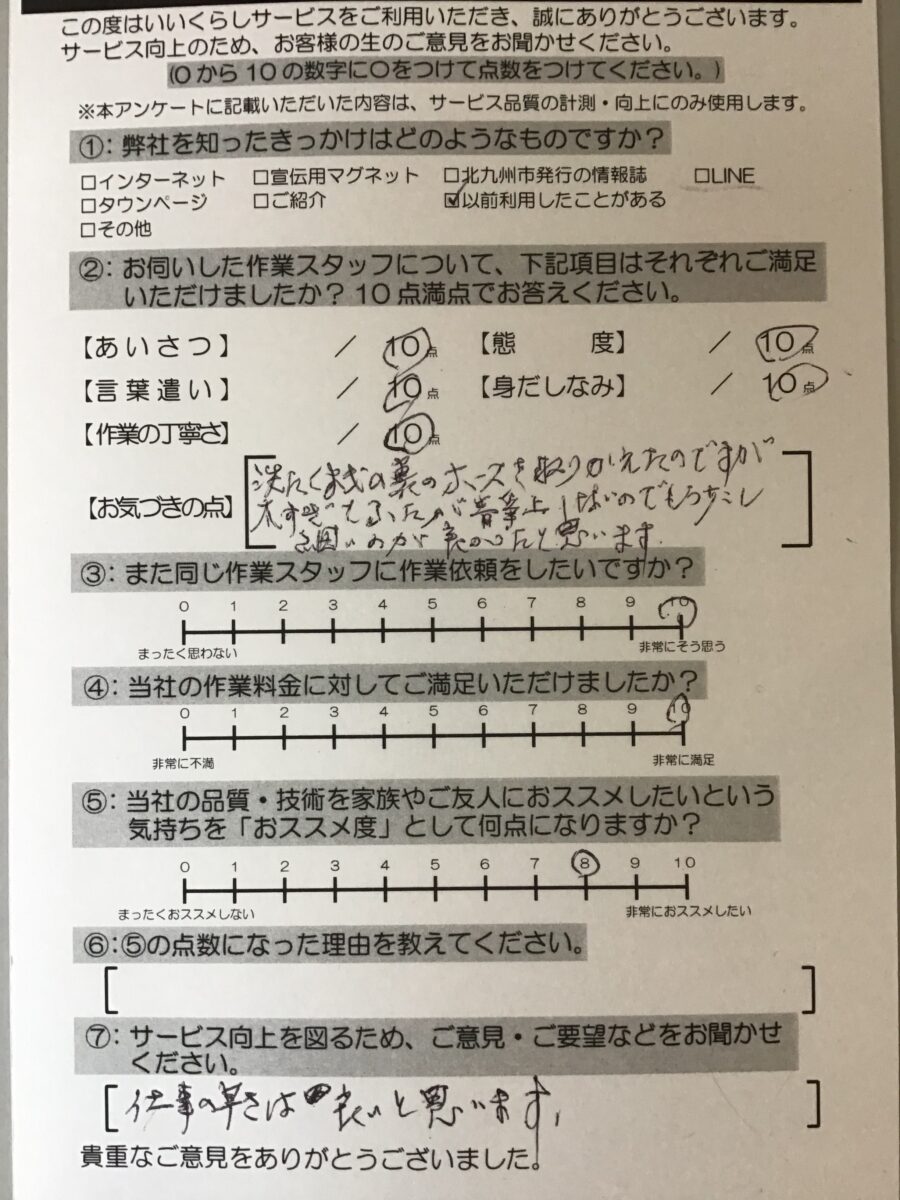 この度はいいくらしサービスをご利用いただき、誠にありがとうございます。
サービス向上のため、お客様の生のご意見をお聞かせください。
(0から10の数字に○をつけて点数をつけてください。)
※本アンケートに記載いただいた内容は、サービス品質の計測・向上にのみ使用します。
①:弊社を知ったきっかけはどのようなものですか?
□インターネット □宣伝用マグネット □北九州市発行の情報誌 □LINE
□タウンページ □ご紹介 ☑以前利用したことがある
□その他
②:お伺いした作業スタッフについて、下記項目はそれぞれご満足
いただけましたか?10点満点でお答えください。
【あいさつ】 / 10点 【態度】 / 10点
【言葉遣い】 / 10点 【身だしなみ】 / 10点
【作業の丁寧さ】 / 10点
洗たくきの裏のホースを取りかえたのですが
【お気づきの点】
のでもう少し
細いのが良かったと思います.
③:また同じ作業スタッフに作業依頼をしたいですか?
0 1 2 3 4 5 6 7 8 9 10
まったく思わない 非常にそう思う
④:当社の作業料金に対してご満足いただけましたか?
0 1 2 3 4 5 6 7 8 9 10
非常に不満 非常に満足
⑤:当社の品質・技術を家族やご友人におススメしたいという
気持ちを「おススメ度」として何点になりますか?
0 1 2 3 4 5 6 7 8 9 10
まったくおススメしない 非常におススメしたい
⑥:⑤の点数になった理由を教えてください。
⑦:サービス向上を図るため、ご意見・ご要望などをお聞かせ
ください。
仕事の早さは良いと思います,
貴重なご意見をありがとうございました。